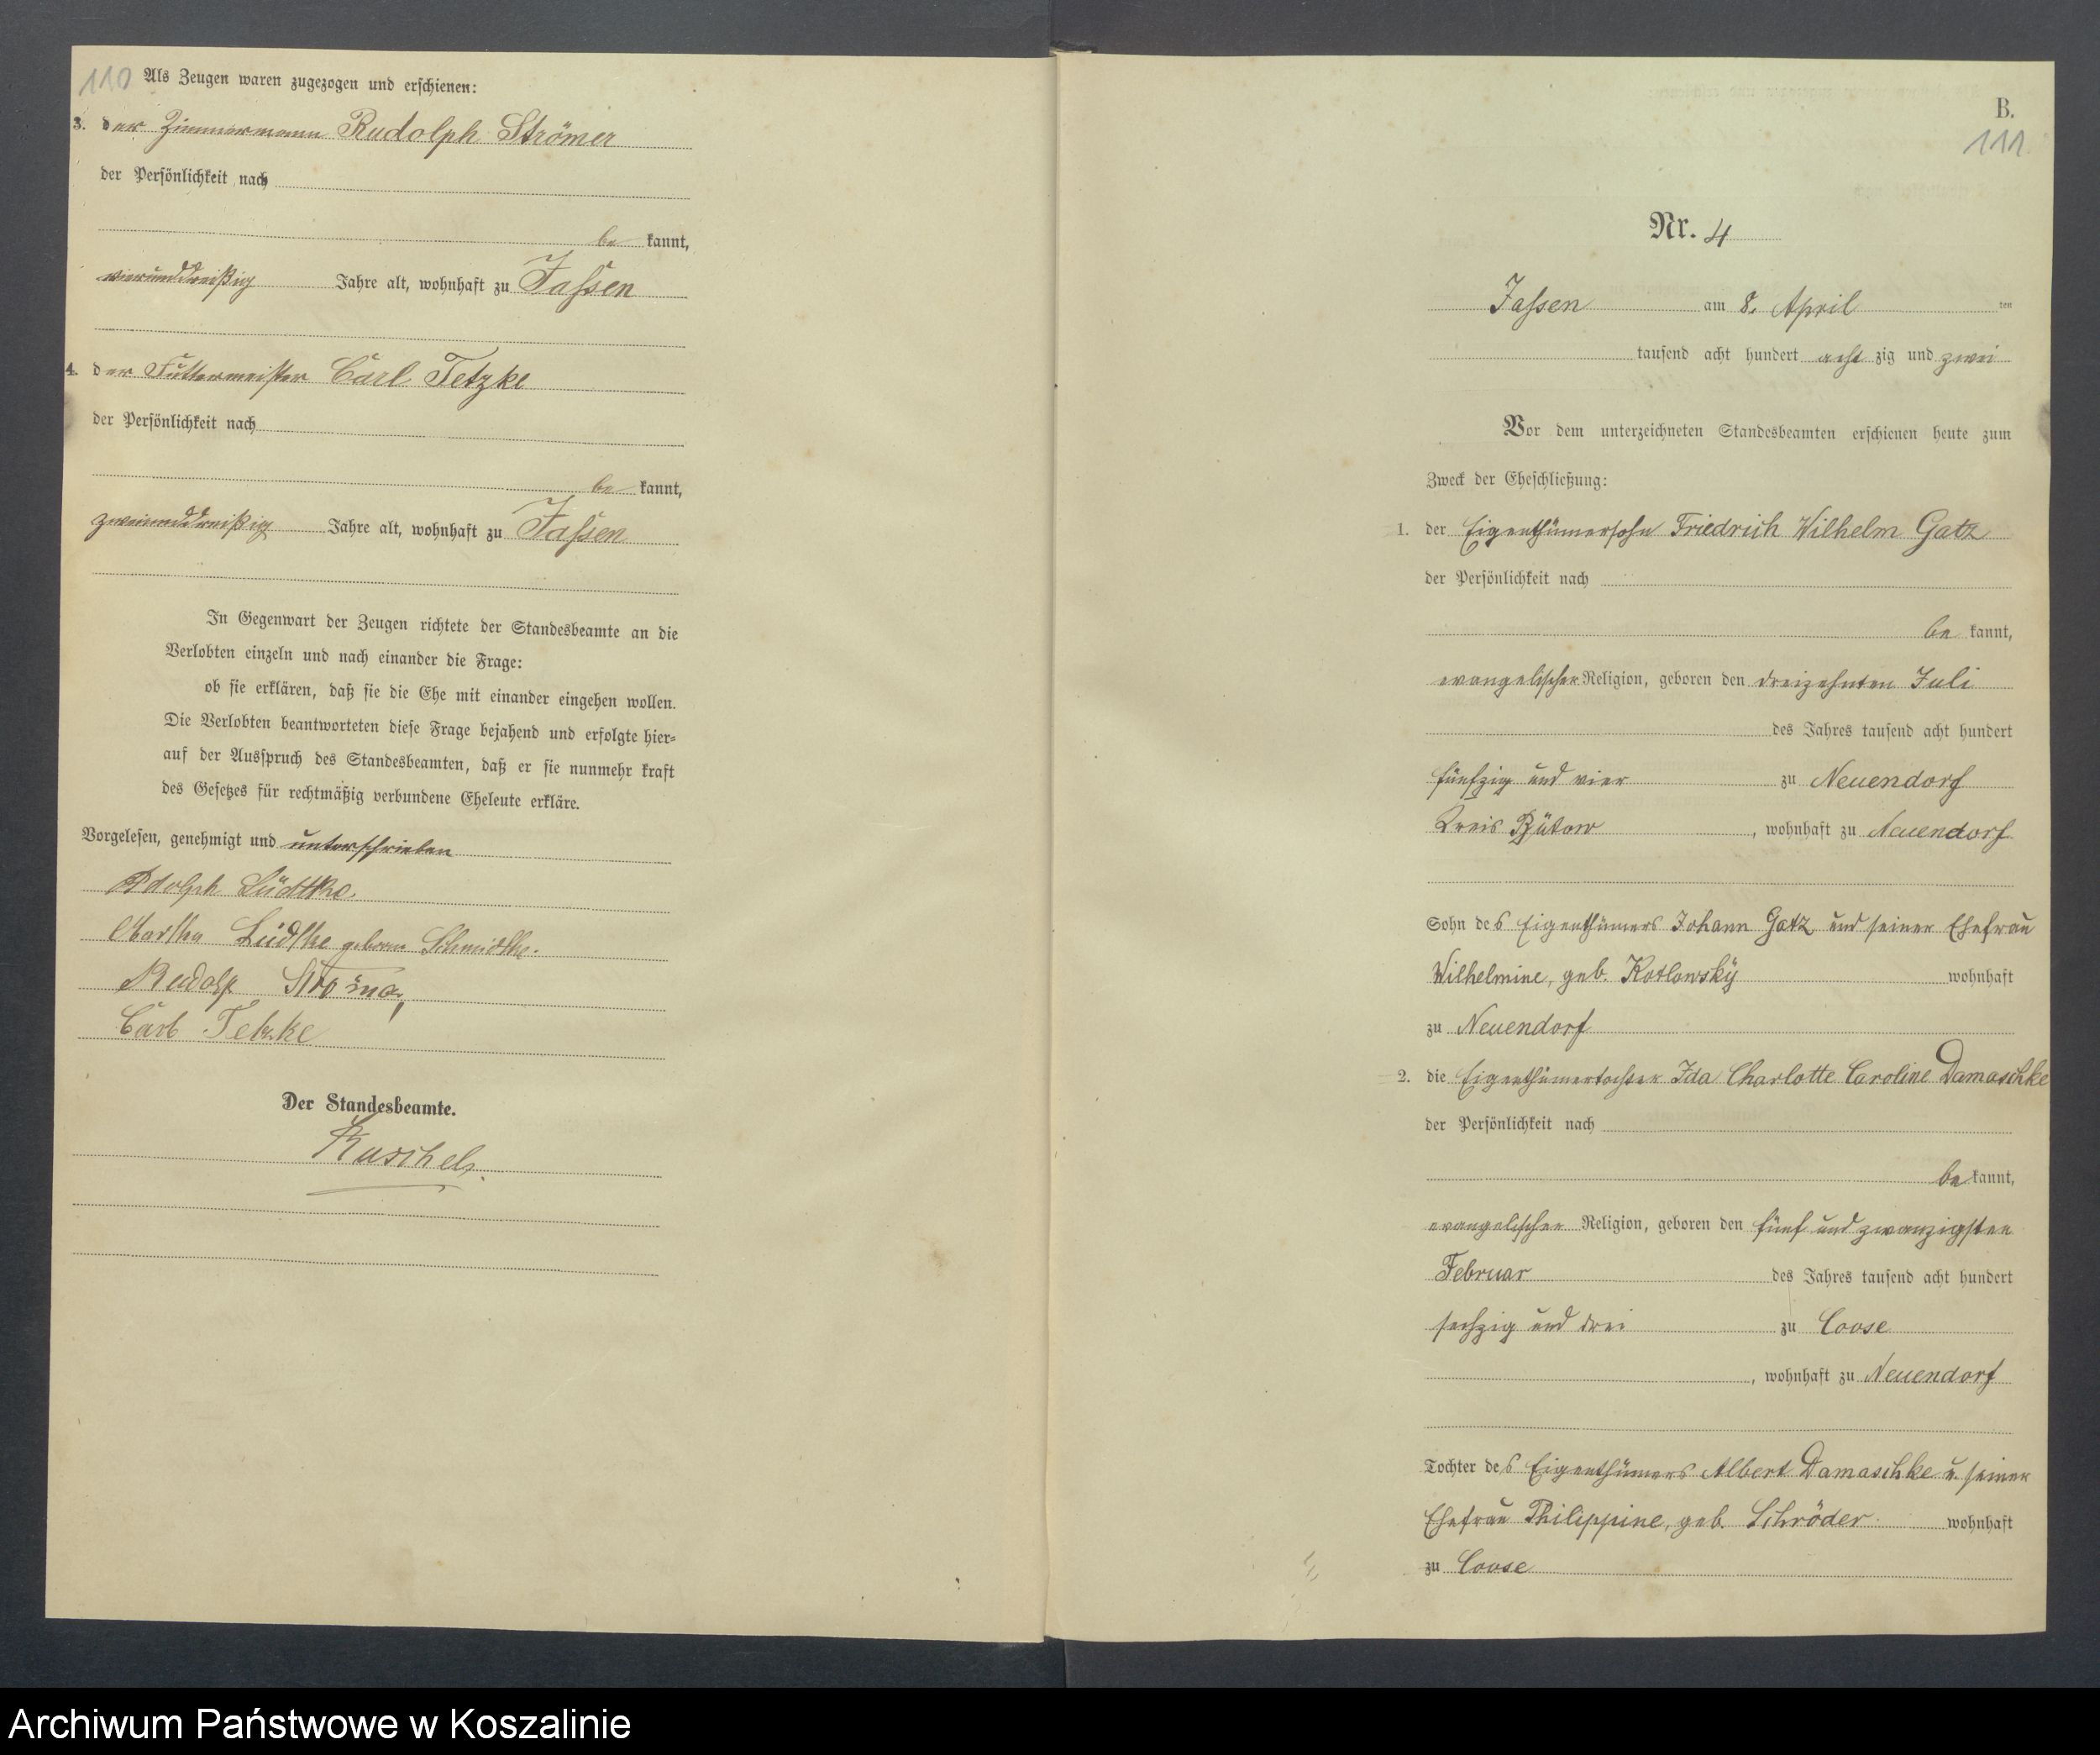 110
Als Zeugen waren zugezogen und erschienen:
3. der Zimmermann Rudolph Strömer
der Persönlichkeit nach
be kannt,
vierunddreißig Jahre alt, wohnhaft zu Jassen
4. der Futtermeister Carl Tetzke
der Persönlichkeit nach
be kannt,
zweiunddreißig Jahre alt, wohnhaft zu Jassen
In Gegenwart der Zeugen richtete der Standesbeamte an die
Verlobten einzeln und nach einander die Frage:
ob sie erklären, daß sie die Ehe mit einander eingehen wollen.
Die Verlobten beantworteten diese Frage bejahend und erfolgte hier-
auf der Ausspruch des Standesbeamten, daß er sie nunmehr kraft
des Gesetzes für rechtmäßig verbundene Eheleute erkläre.
Vorgelesen, genehmigt und unterschrieben
Adolph Lüdtke
Martha Lüdtke geborne Schmidtke.
Rudolf Strömer
Carl Tetzke
Der Standesbeamte.
Kuschel.
B.
111
Nr. 4
Jassen am 8. April ten
tausend acht hundert acht zig und zwei
Vor dem unterzeichneten Standesbeamten erschienen heute zum
Zweck der Eheschließung:
1. der Eigenthümersohn Friedrich Wilhelm Gatz
der Persönlichkeit nach
be kannt,
evangelischer Religion, geboren den dreizehnten Juli
des Jahres tausend acht hundert
fünfzig und vier zu Neuendorf
Kreis Bütow, wohnhaft zu Neuendorf
Sohn des Eigenthümers Johann Gatz und seiner Ehefrau
Wilhelmine, geb. Kotlowsky wohnhaft
zu Neuendorf
2. die Eigenthümertochter Ida Charlotte Caroline Damaschke
der Persönlichkeit nach
be kannt,
evangelischer Religion, geboren den fünf und zwanzigsten
Februar des Jahres tausend acht hundert
sechzig und drei zu Coose
, wohnhaft zu Neuendorf
Tochter des Eigenthümers Albert Damaschke u. seiner
Ehefrau Philippine, geb. Schröder wohnhaft
zu Coose
Archiwum Państwowe w Koszalinie